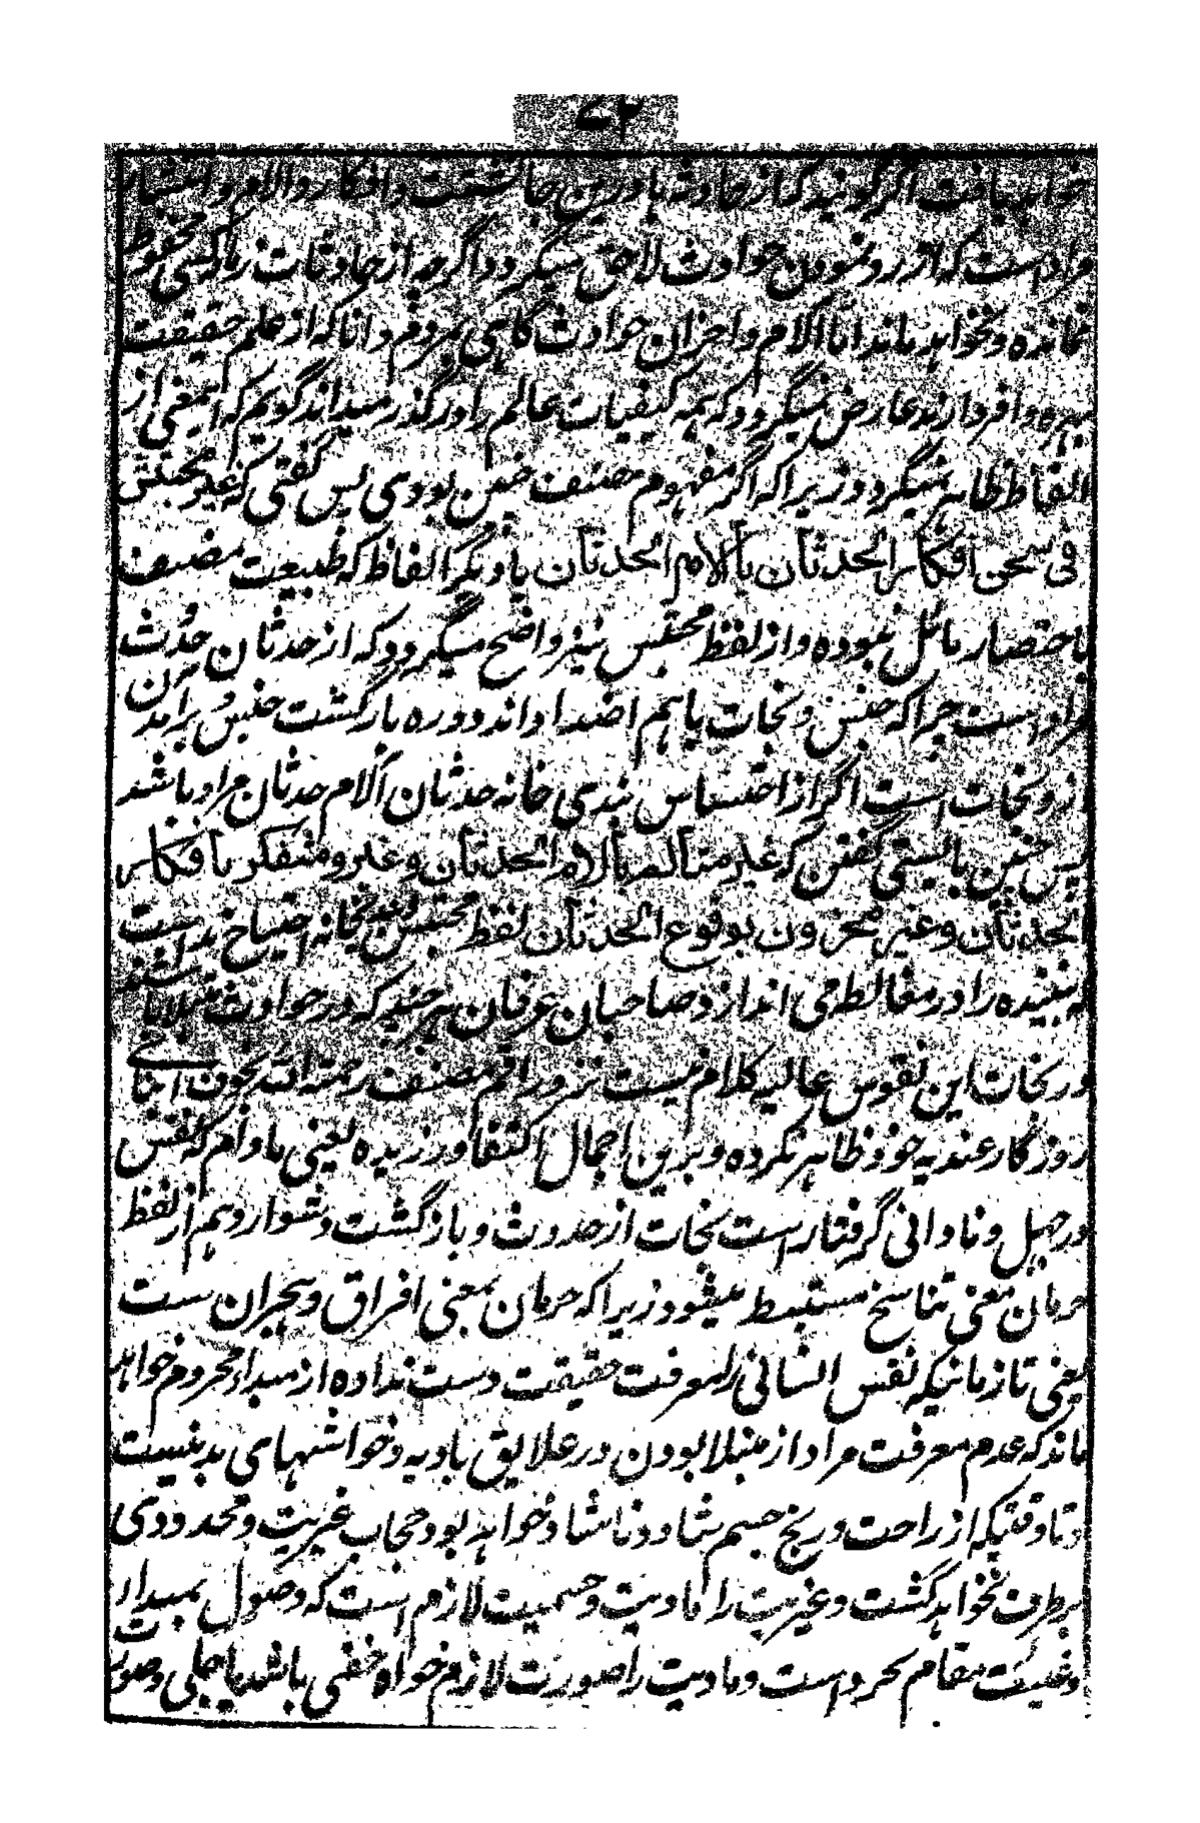 ۷۲
خواهد یافت اگر گویند که از حادثه یا درین جا نشئت و افکار و آلام و انتشار
مراد است که از رو نمودن حوادث لاحق میگردد اگرچه از حادثات زمانه کسی محفوظ
نمانده و نخواهد ماند اما آلام و احزان حوادث گاهی بمردم دانا که از علم حقیقت
بهره وافر دارند عارض نمیگردد که همه کیفیات عالم را در گذر میدانند گویم که اینمعنی از
الفاظ ظاهر نمیگردد زیرا که اگر مفهوم مصنف چنین بودی پس گفتی که غیر محتبس
فی سجن افکار الحدثان بآلام الحدثان یا دیگر الفاظ که طبیعت مصنف
باختصار مائل نبوده و از لفظ محتبس نیز واضح میگردد که از حدثان حدوث بدن
مراد است چرا که حبس و نجات باهم اضداد اند و دوره بازگشت حبس و برآمدن
ازو نجات است اگر از احتباس بندی خانه حدثان آلام حدثان مراد باشد
پس چنین بایستی گفتن که غیر متالم بآلام الحدثان و غیر و متفکر بافکار
الحدثان و غیر محزون بوقوع الحدثان لفظ محتبس و بندیخانه احتیاج نداشت
که بیننده را در مغالطه می اندازد صاحبان عرفان هر چند که در حوادث مبتلا باشند
در نجات این نفوس عالیه کلام نیست نزد راقم مصنف رحمة الله بخوف ابنای
روزگار عندیه خود ظاهر نکرده و برین اجمال اکتفا ورزیده یعنی مادام که نفس
در جهل و نادانی گرفتار است نجات از حدوث و بازگشت دشوار و هم از لفظ
حرمان معنی تناسخ مستنبط میشود زیرا که حرمان بمعنی افراق و هجران ست
یعنی تا زمانیکه نفس انسانی را معرفت حقیقت دست نداده از مبداء محروم خواهد
ماند که عدم معرفت مراد از مبتلا بودن در علایق بادیه و خواهشهای بدنیست
و تا وقتیکه از راحت و رنج جسم شاد و ناشاد خواهد بود حجاب غیریت و محدودی
برطرف نخواهد گشت و غیریت را مادیت و جسمیت لازم است که وصول بمبداء
و غیبت مقام تجرد است و مادیت را صورت لازم خواه خفی باشد یا جلی و صورت